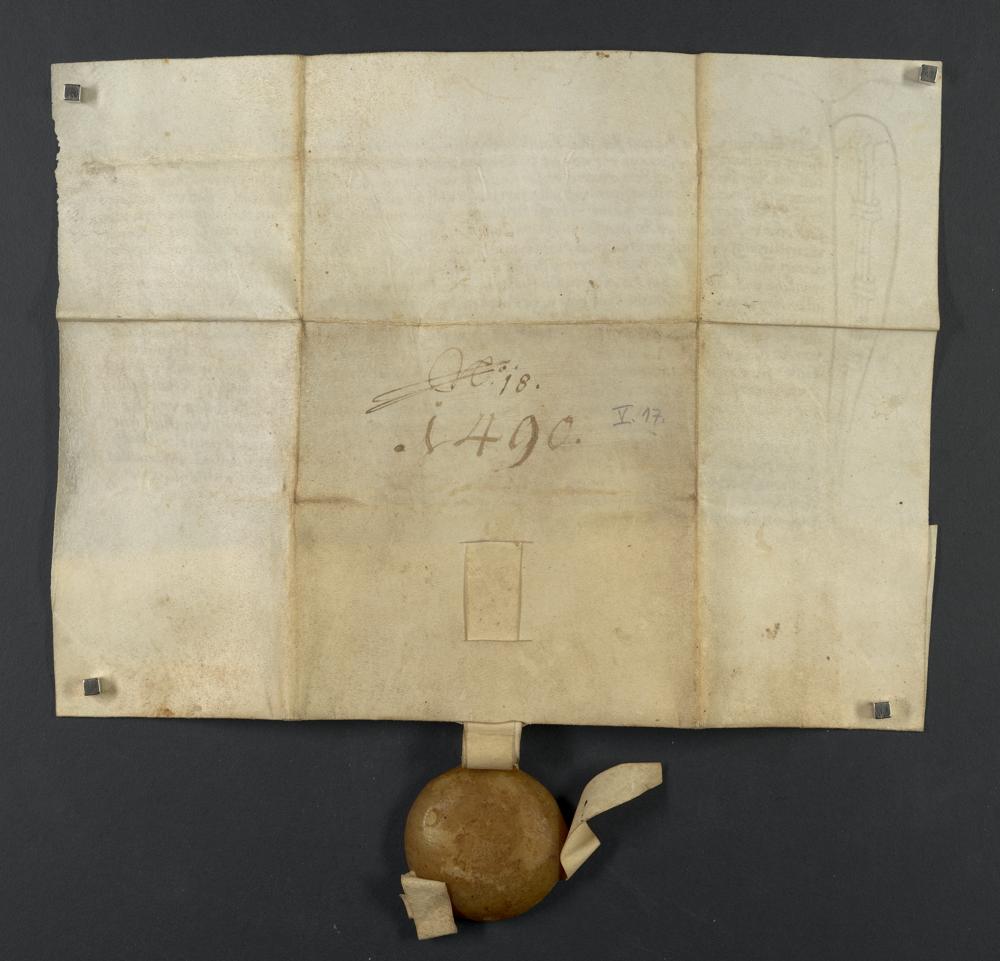 N: 18.
.1490.
V. 17.